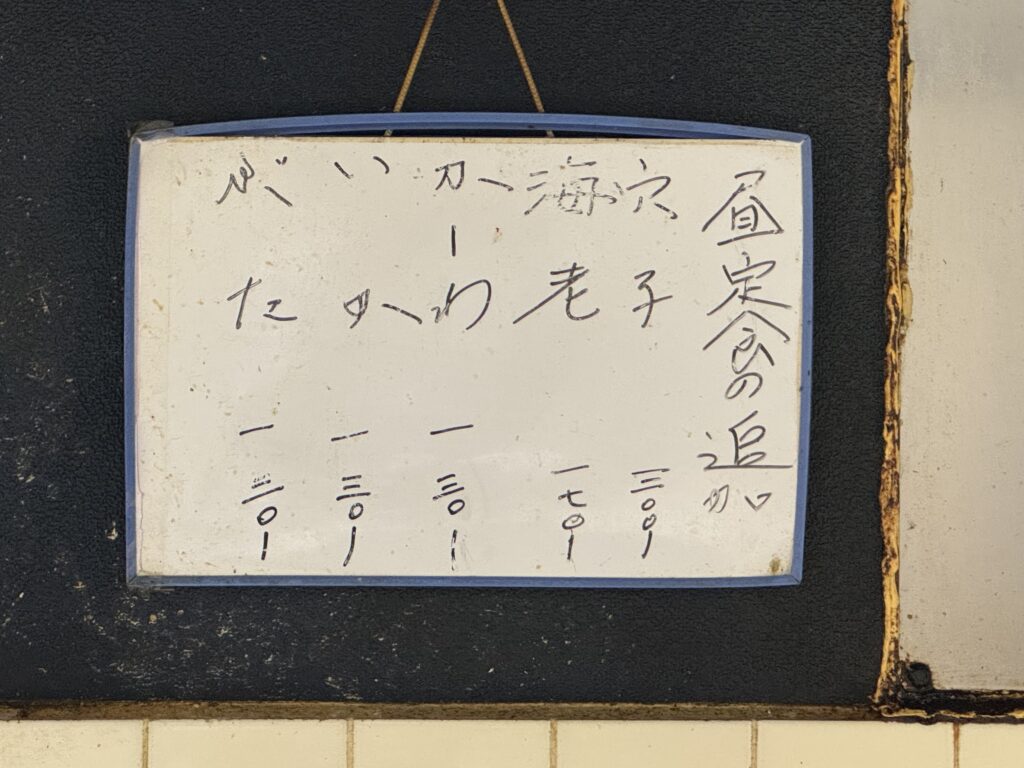 昼定食の追加
穴子 三〇〇ー
海老 一七〇ー
かしわ 一三〇ー
いか 一三〇ー
ぶた 一三〇ー